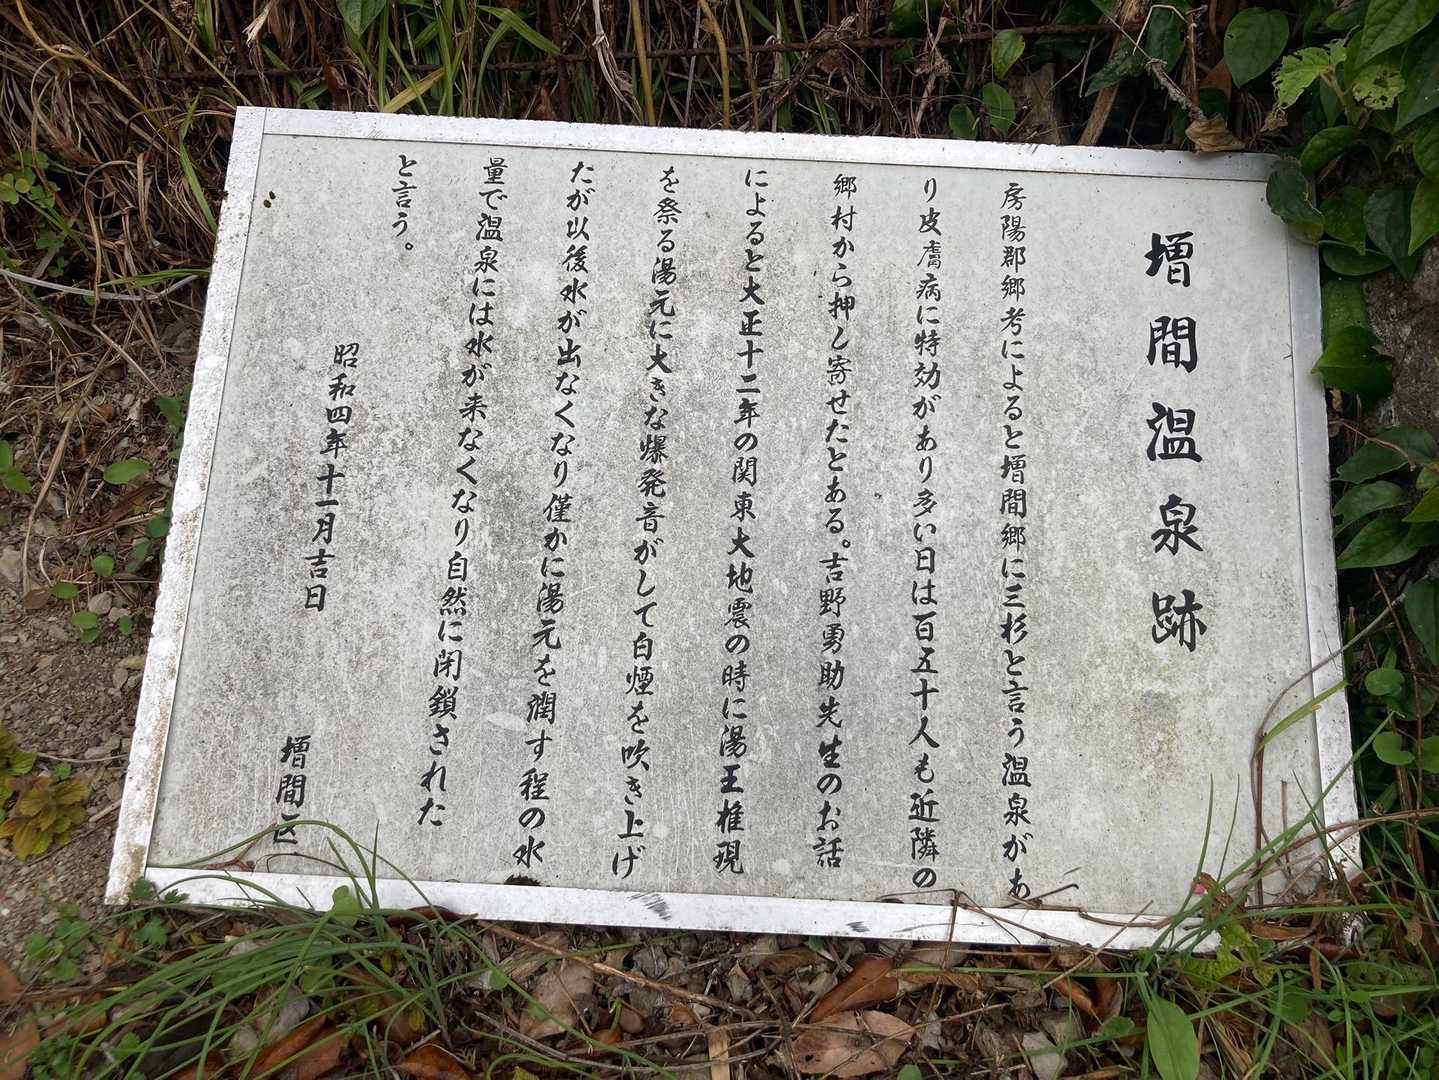 増間温泉跡
房陽郡郷考によると増間郷に三杉と言う温泉があ
り皮膚病に特効があり多い日は百五十人も近隣の
郷村から押し寄せたとある。吉野勇助先生のお話
によると大正十二年の関東大地震の時に湯王権現
を祭る湯元に大きな爆発音がして白煙を吹き上げ
たが以後水が出なくなり僅かに湯元を潤す程の水
量で温泉には水が来なくなり自然に閉鎖された
と言う。
昭和四年十一月吉日
増間区